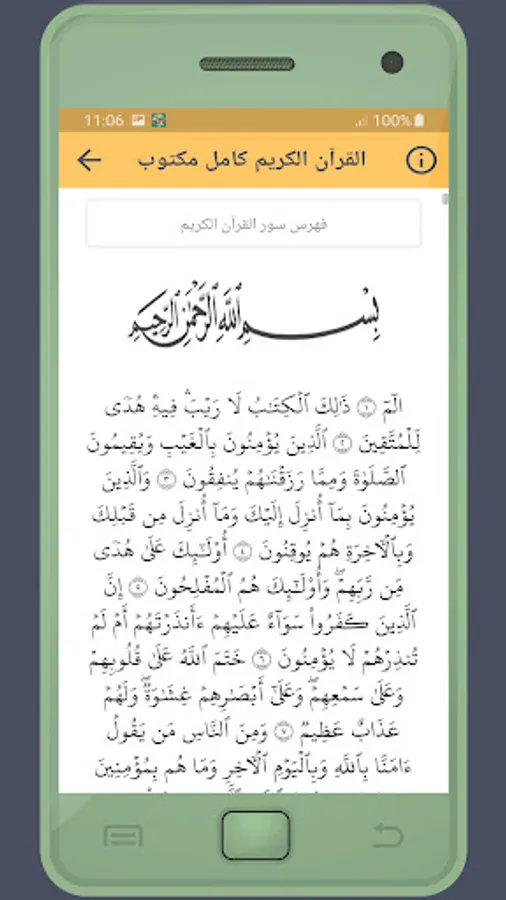 11:06 100%
القرآن الكريم كامل مكتوب
فهرس سور القرآن الكريم
بِسْمِ ٱللَّهِ ٱلرَّحْمَٰنِ ٱلرَّحِيمِ
الٓمٓ ۝١ ذَٰلِكَ ٱلْكِتَٰبُ لَا رَيْبَ ۛ فِيهِ ۛ هُدًى
لِّلْمُتَّقِينَ ۝٢ ٱلَّذِينَ يُؤْمِنُونَ بِٱلْغَيْبِ وَيُقِيمُونَ
ٱلصَّلَوٰةَ وَمِمَّا رَزَقْنَٰهُمْ يُنفِقُونَ ۝٣ وَٱلَّذِينَ
يُؤْمِنُونَ بِمَآ أُنزِلَ إِلَيْكَ وَمَآ أُنزِلَ مِن قَبْلِكَ
وَبِٱلْءَاخِرَةِ هُمْ يُوقِنُونَ ۝٤ أُو۟لَٰٓئِكَ عَلَىٰ هُدًى
مِّن رَّبِّهِمْ ۖ وَأُو۟لَٰٓئِكَ هُمُ ٱلْمُفْلِحُونَ ۝٥ إِنَّ
ٱلَّذِينَ كَفَرُوا۟ سَوَآءٌ عَلَيْهِمْ ءَأَنذَرْتَهُمْ أَمْ لَمْ
تُنذِرْهُمْ لَا يُؤْمِنُونَ ۝٦ خَتَمَ ٱللَّهُ عَلَىٰ قُلُوبِهِمْ
وَعَلَىٰ سَمْعِهِمْ ۖ وَعَلَىٰٓ أَبْصَٰرِهِمْ غِشَٰوَةٌ ۖ وَلَهُمْ
عَذَابٌ عَظِيمٌ ۝٧ وَمِنَ ٱلنَّاسِ مَن يَقُولُ
ءَامَنَّا بِٱللَّهِ وَبِٱلْيَوْمِ ٱلْءَاخِرِ وَمَا هُم بِمُؤْمِنِينَ